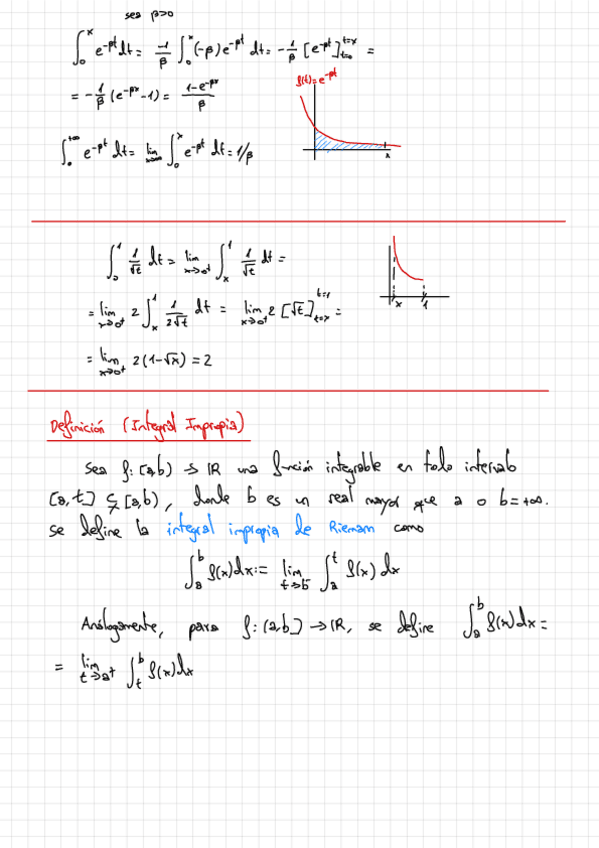 sea β>0
∫₀ˣ e^{-βt} dt = -1/β ∫₀ˣ (-β) e^{-βt} dt = -1/β [e^{-βt}]_{t=0}^{t=x} =
= -1/β (e^{-βx} - 1) = (1 - e^{-βx})/β
f(t) = e^{-βt}
x
∫₀^{+∞} e^{-βt} dt = lim_{x→∞} ∫₀ˣ e^{-βt} dt = 1/β
∫₀¹ 1/√t dt = lim_{x→0⁺} ∫ₓ¹ 1/√t dt =
= lim_{x→0⁺} 2 ∫ₓ¹ 1/(2√t) dt = lim_{x→0⁺} 2 [√t]_{t=x}^{t=1} =
x 1
= lim_{x→0⁺} 2(1-√x) = 2
Definición (Integral Impropia)
Sea f: [a,b) → ℝ una función integrable en todo intervalo
[a,t] ⊊ [a,b), donde b es un real mayor que a o b=+∞.
se define la integral impropia de Riemann como
∫ₐᵇ f(x) dx := lim_{t→b⁻} ∫ₐᵗ f(x) dx
Análogamente, para f: (a,b] → ℝ, se define ∫ₐᵇ f(x) dx =
= lim_{t→a⁺} ∫ₜᵇ f(x) dx